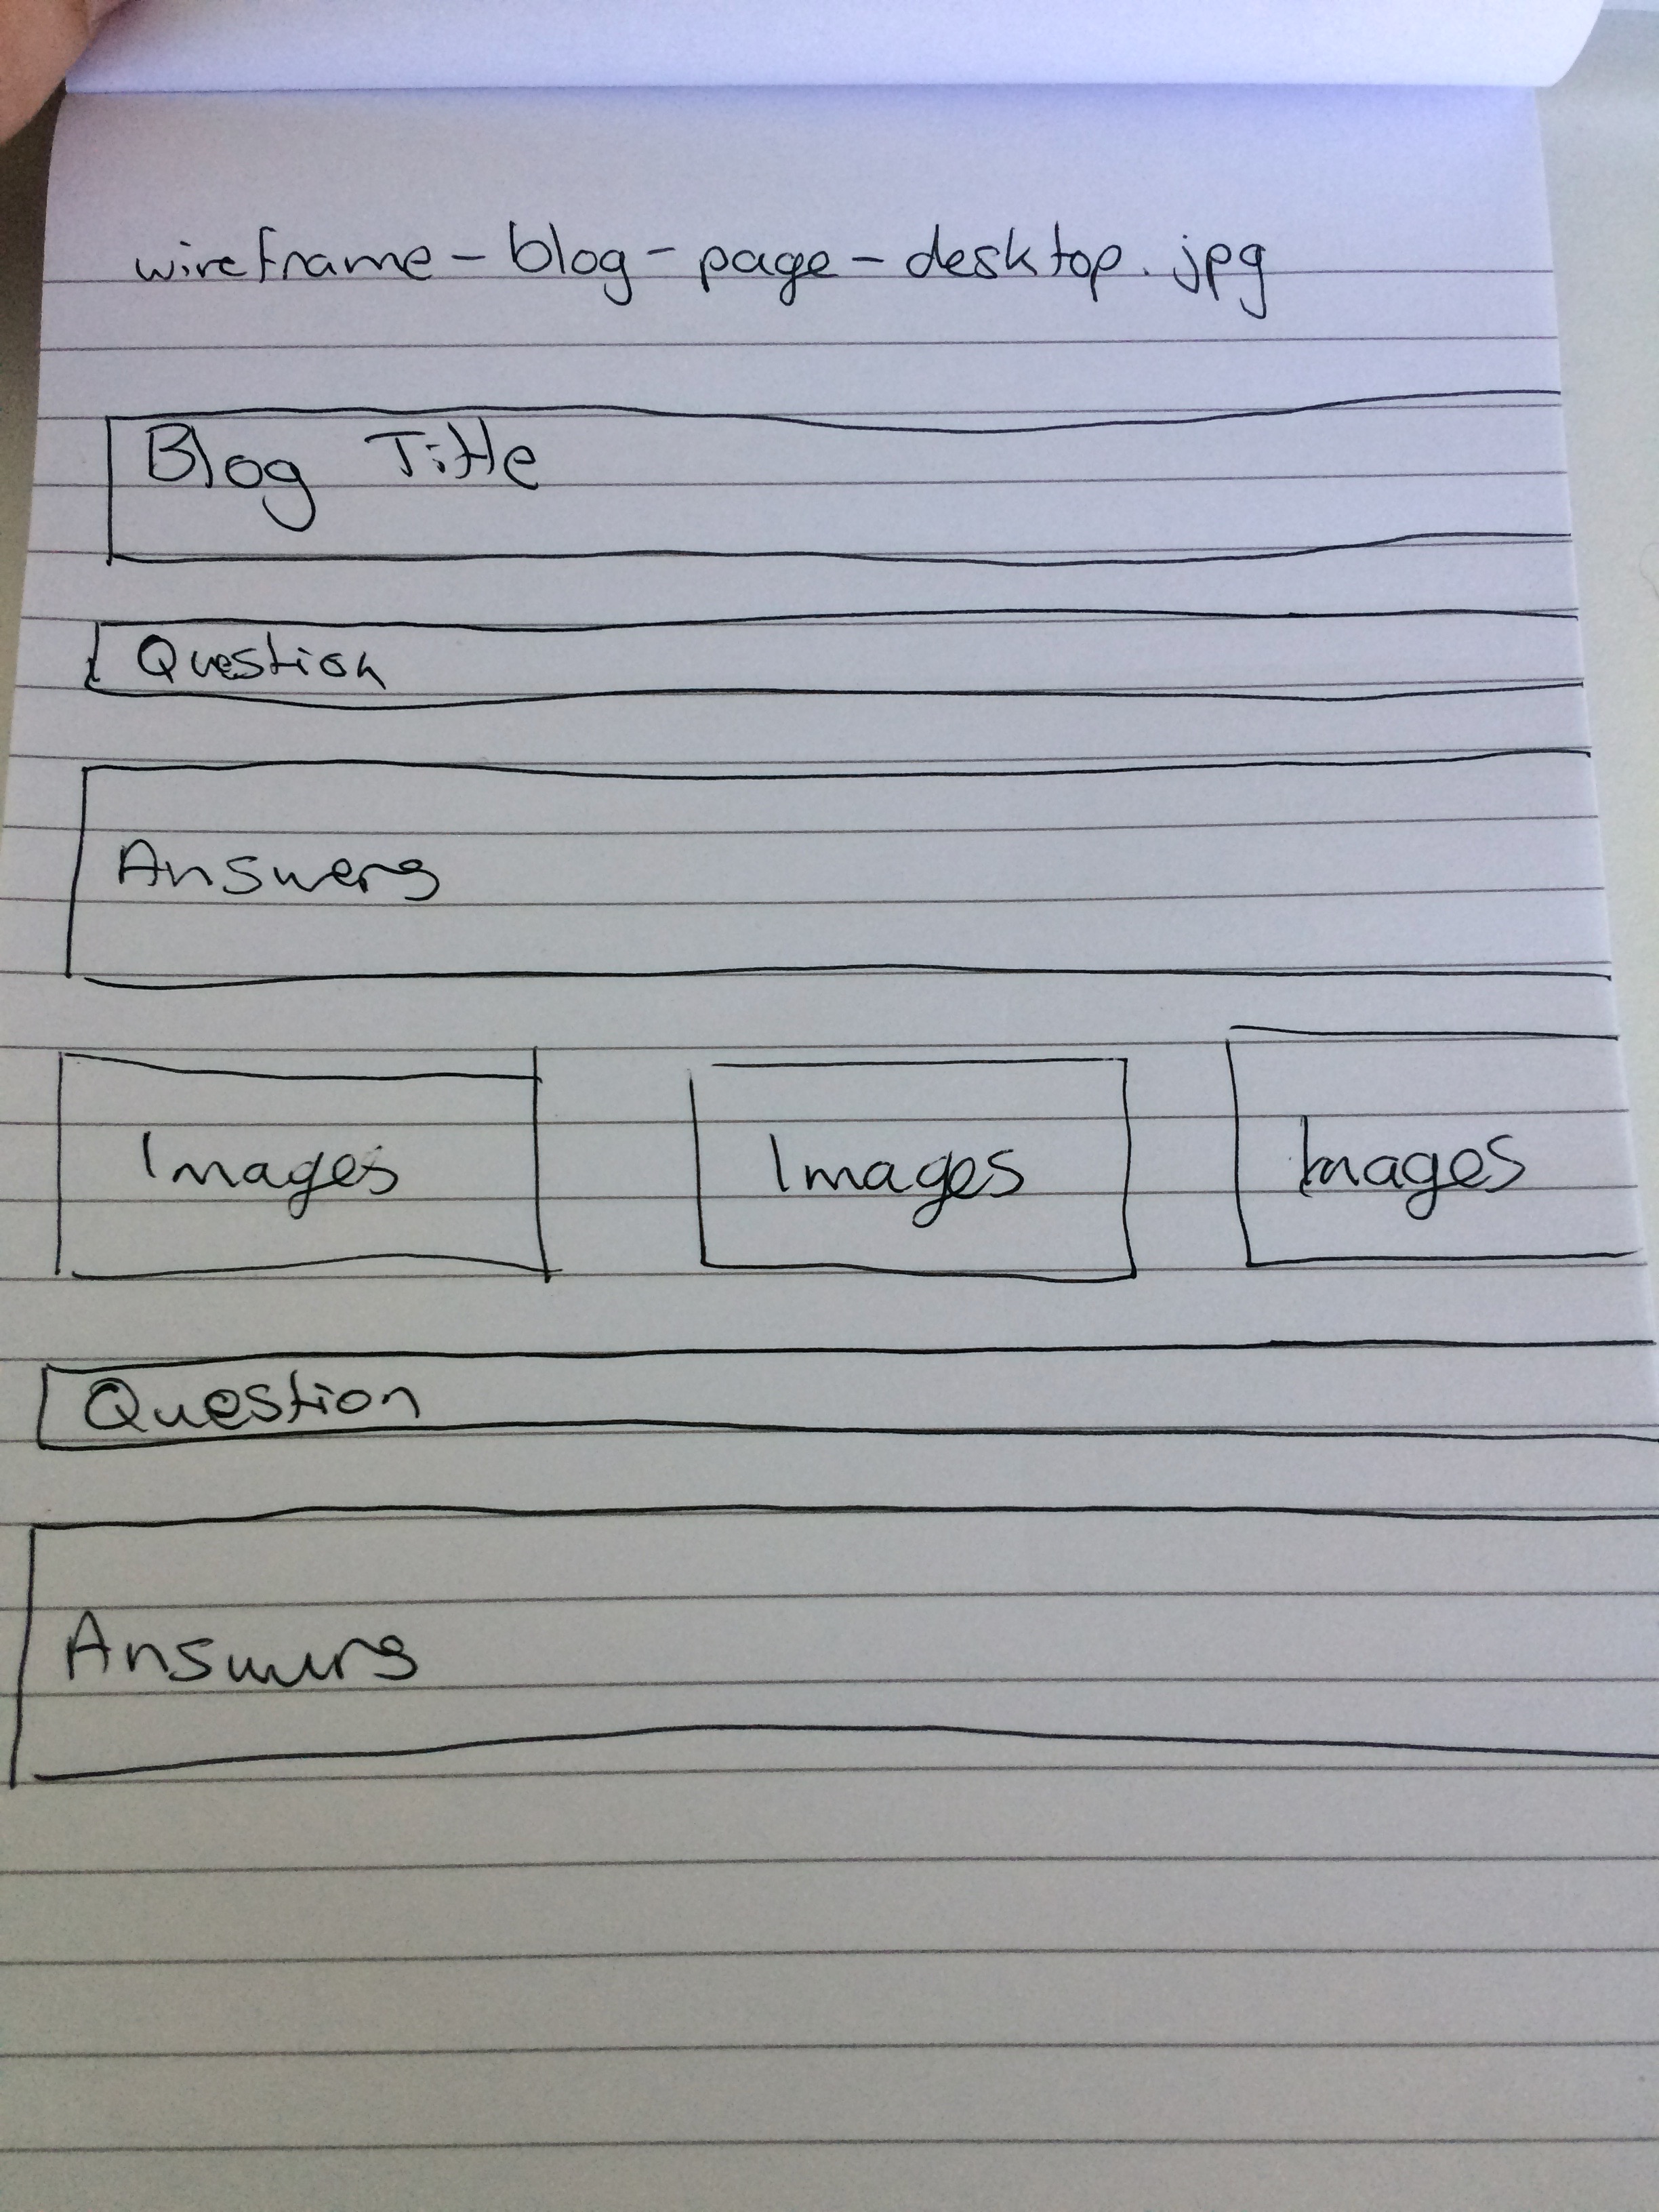 wireframe-blog-page-desktop.jpg
Blog Title
Question
Answers
Images Images Images
Question
Answers